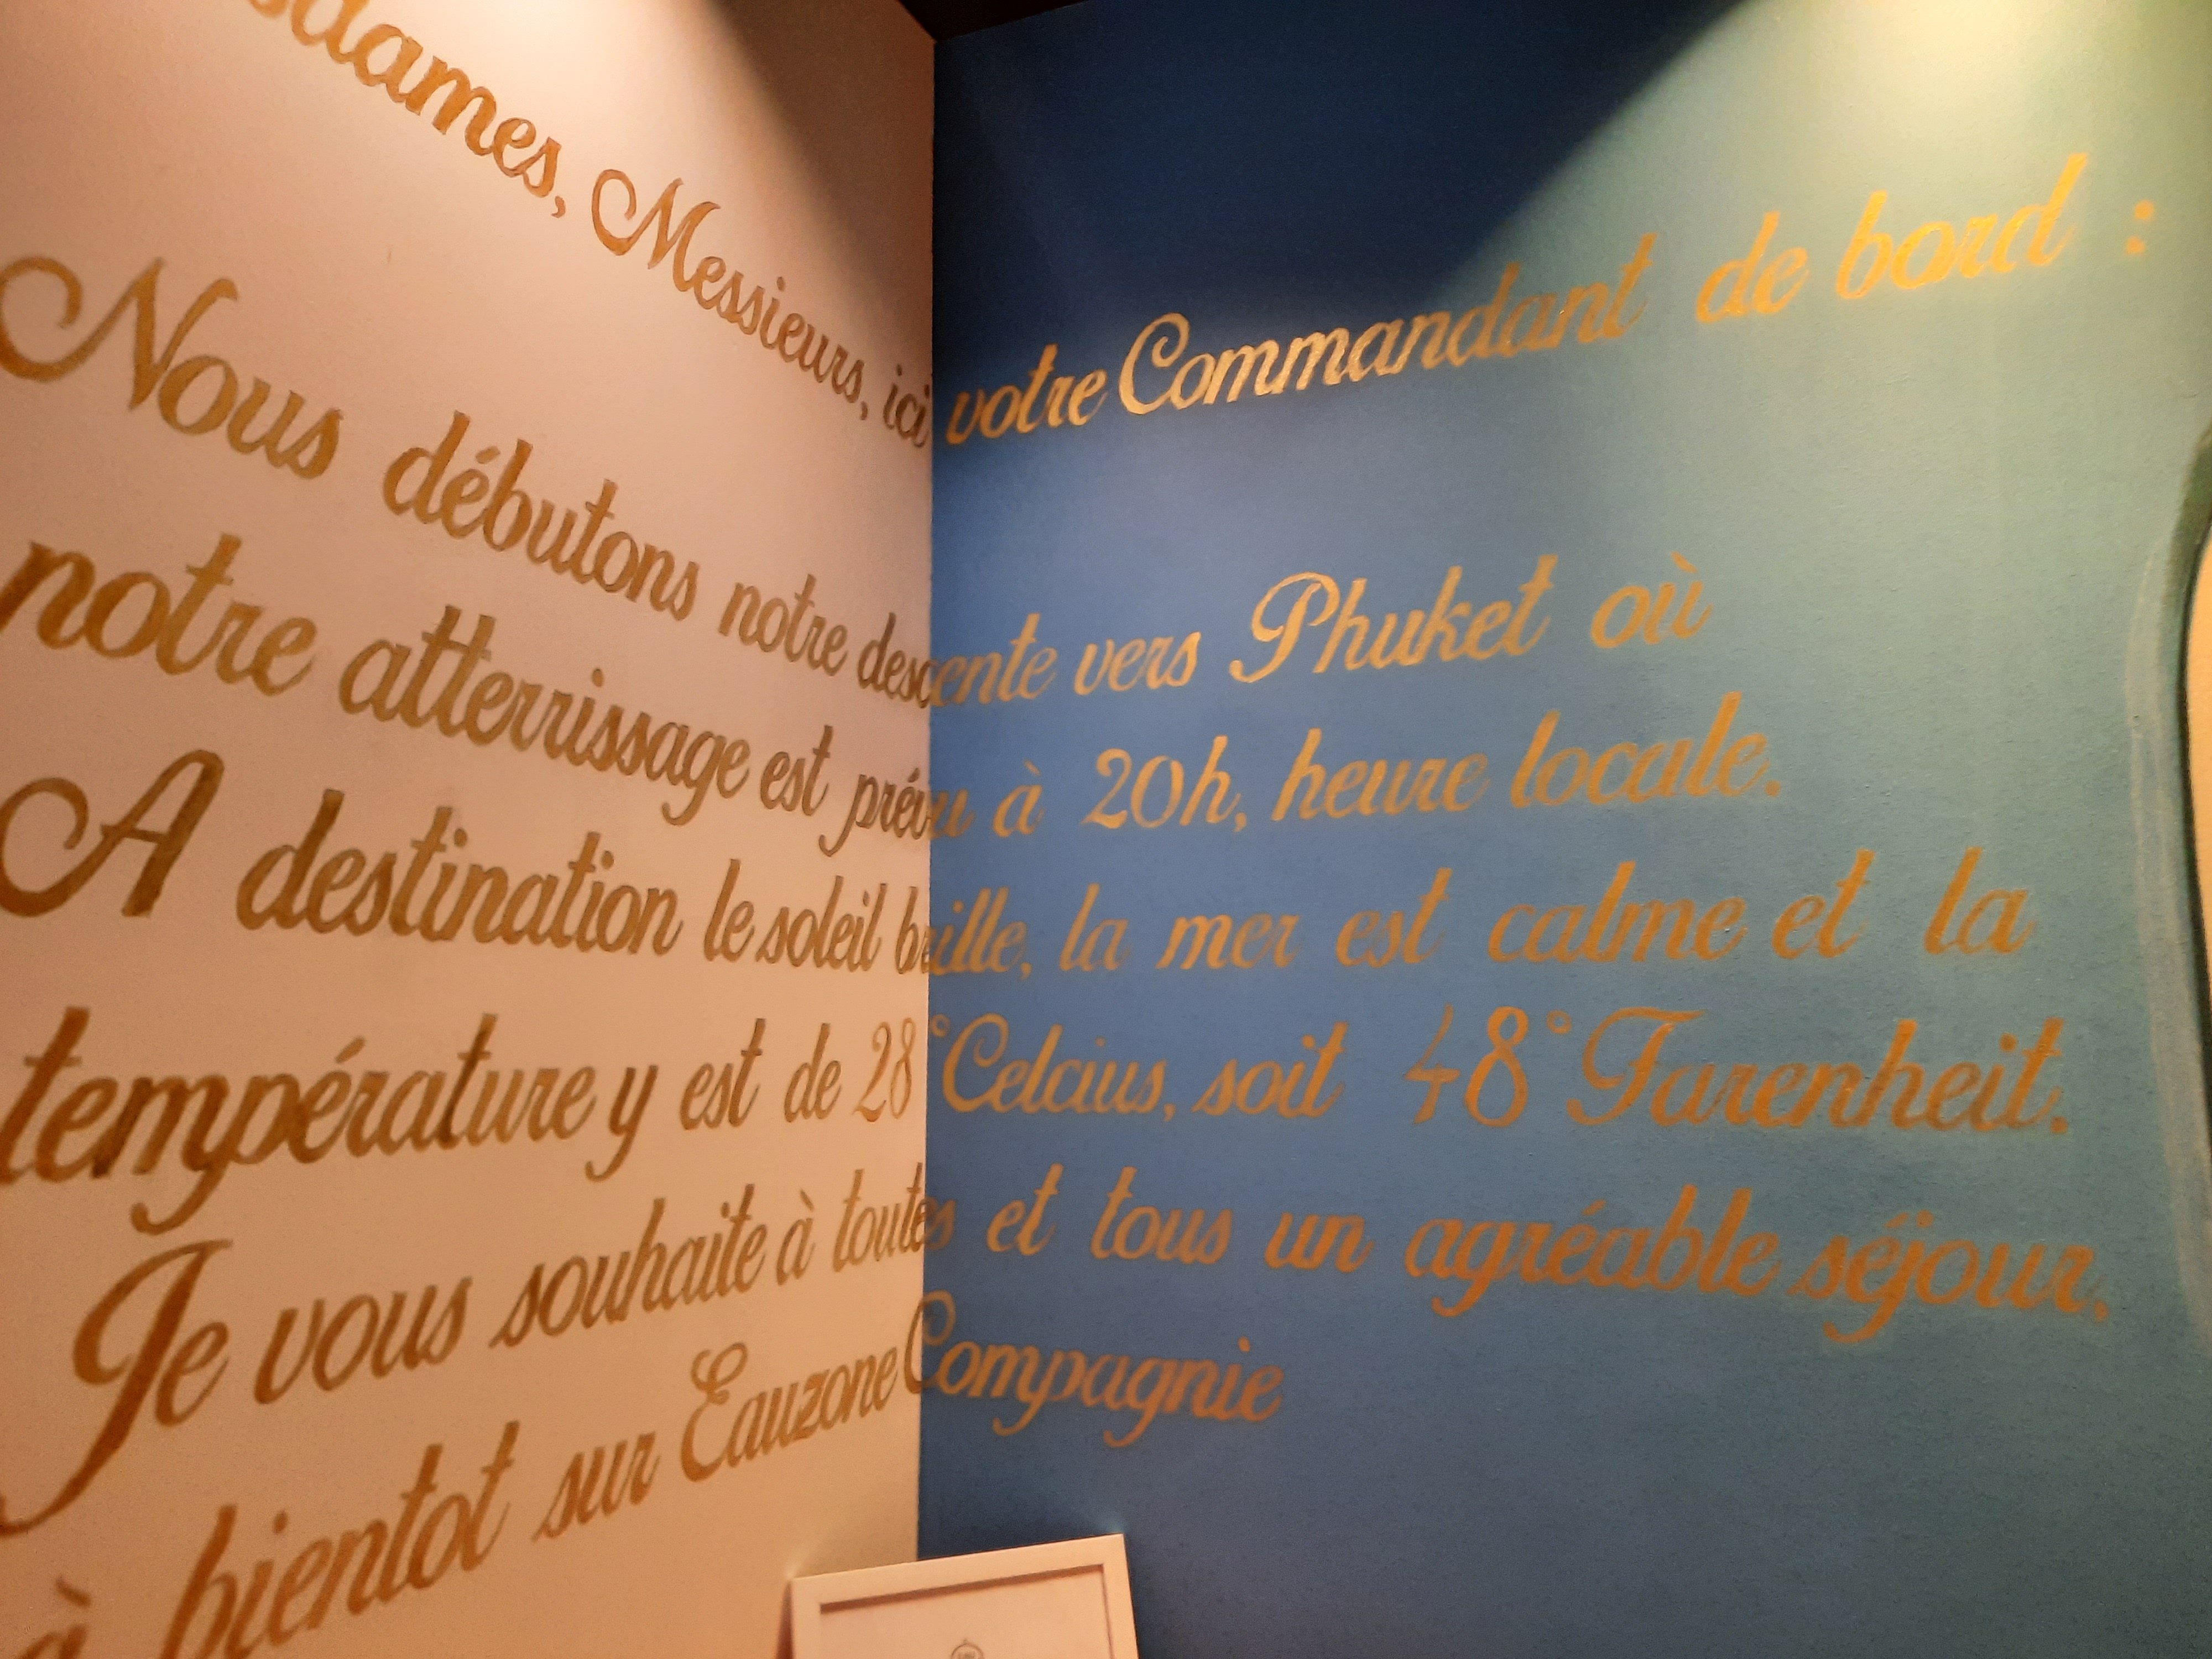 sdames, Messieurs, ici votre Commandant de bord :
Nous débutons notre descente vers Phuket où
notre atterrissage est prévu à 20h, heure locale.
A destination le soleil brille, la mer est calme et la
température y est de 28°Celcius, soit 48°Farenheit.
Je vous souhaite à toutes et tous un agréable séjour,
à bientot sur Eauzone Compagnie